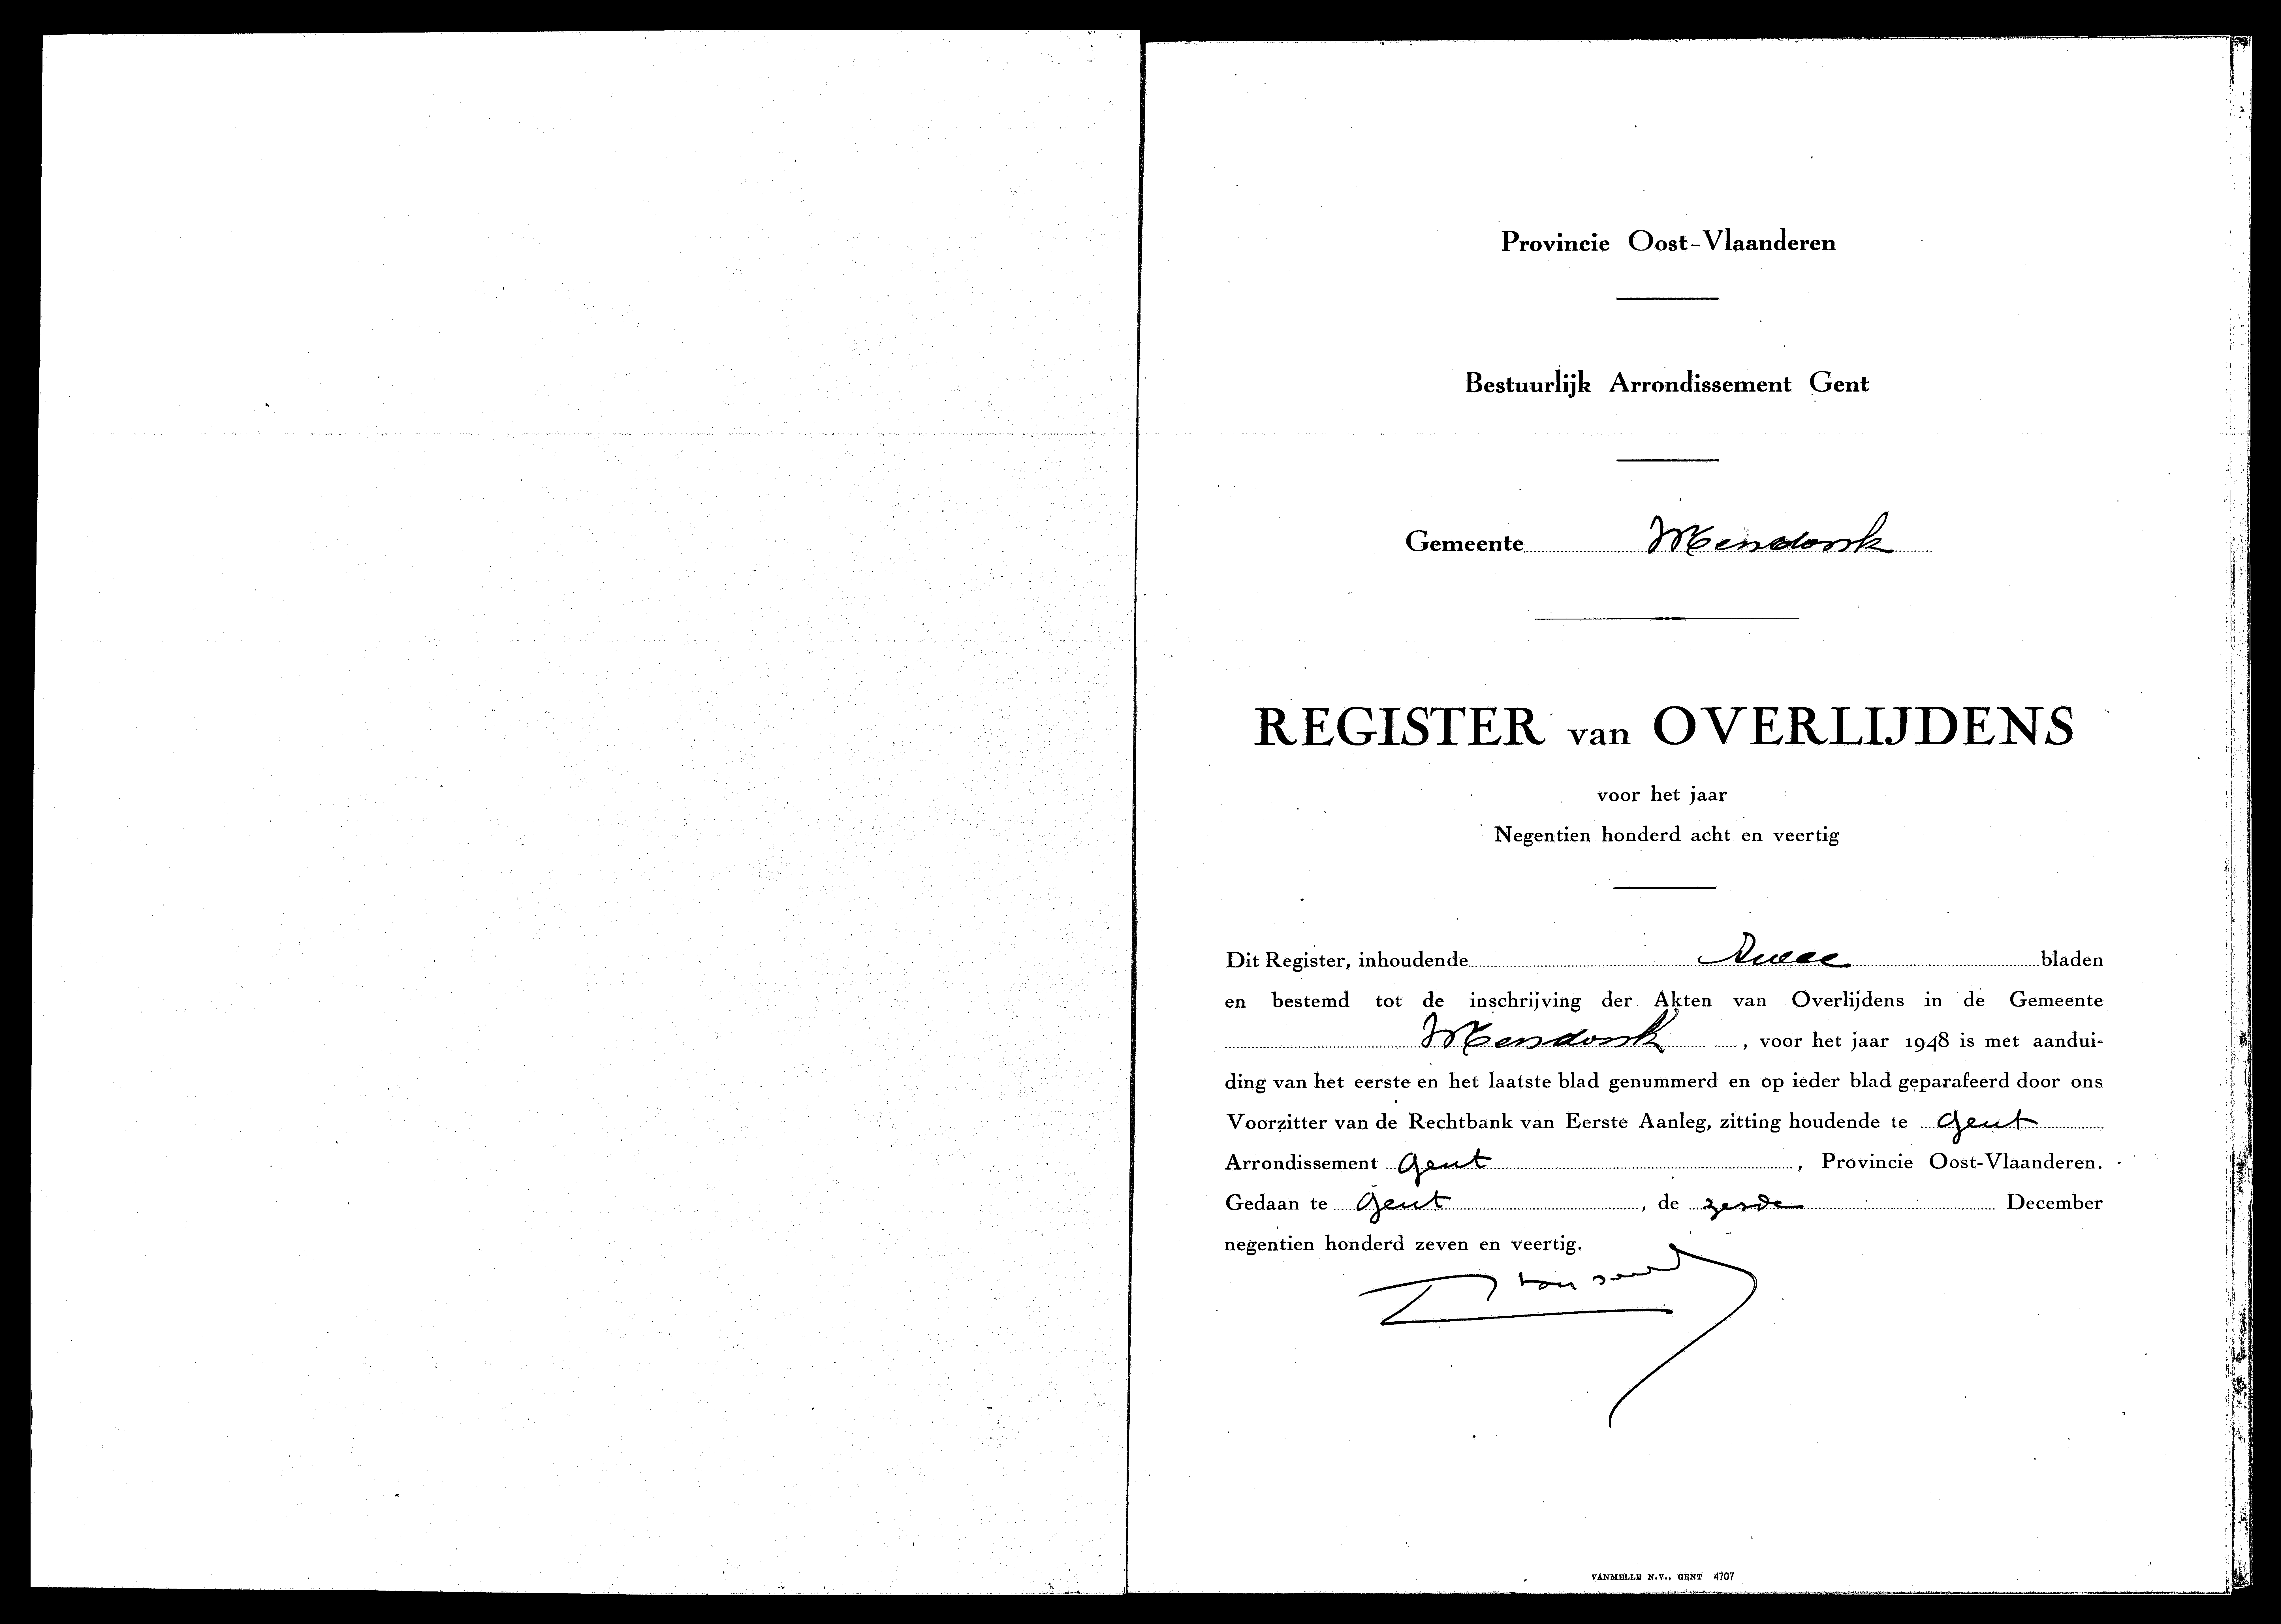 Provincie Oost-Vlaanderen
Bestuurlijk Arrondissement Gent
Gemeente Mendonk
REGISTER van OVERLIJDENS
voor het jaar
Negentien honderd acht en veertig
Dit Register, inhoudende twee bladen
en bestemd tot de inschrijving der Akten van Overlijdens in de Gemeente
Mendonk, voor het jaar 1948 is met aandui-
ding van het eerste en het laatste blad genummerd en op ieder blad geparafeerd door ons
Voorzitter van de Rechtbank van Eerste Aanleg, zitting houdende te Gent
Arrondissement Gent, Provincie Oost-Vlaanderen.
Gedaan te Gent, de zesde December
negentien honderd zeven en veertig.
VANMELLE N.V., GENT 4707